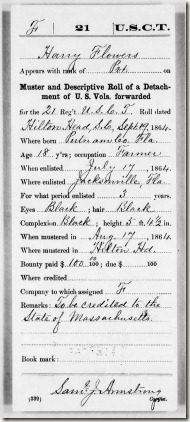 F 21 U.S.C.T.
Harry Flowers
Appears with rank of Pvt. on
Muster and Descriptive Roll of a Detach-
ment of U. S. Vols. forwarded
for the 21 Reg't U.S.C.T. Roll dated
Hilton Head, S.C., Sept. 19, 1864.
Where born Putnam Co. Fla.
Age 18 y'rs; occupation Farmer
When enlisted July 17, 1864.
Where enlisted Jacksonville, Fla
For what period enlisted 3 years.
Eyes Black; hair Black
Complexion Black; height 5 ft. 4½ in.
When mustered in Aug 17, 1864.
Where mustered in Hilton Hd.
Bounty paid $100; due $
Where credited
Company to which assigned F
Remarks: To be credited to the
State of Massachusetts.
Book mark:
Sam. J. Armstrong
(339) Copyist.